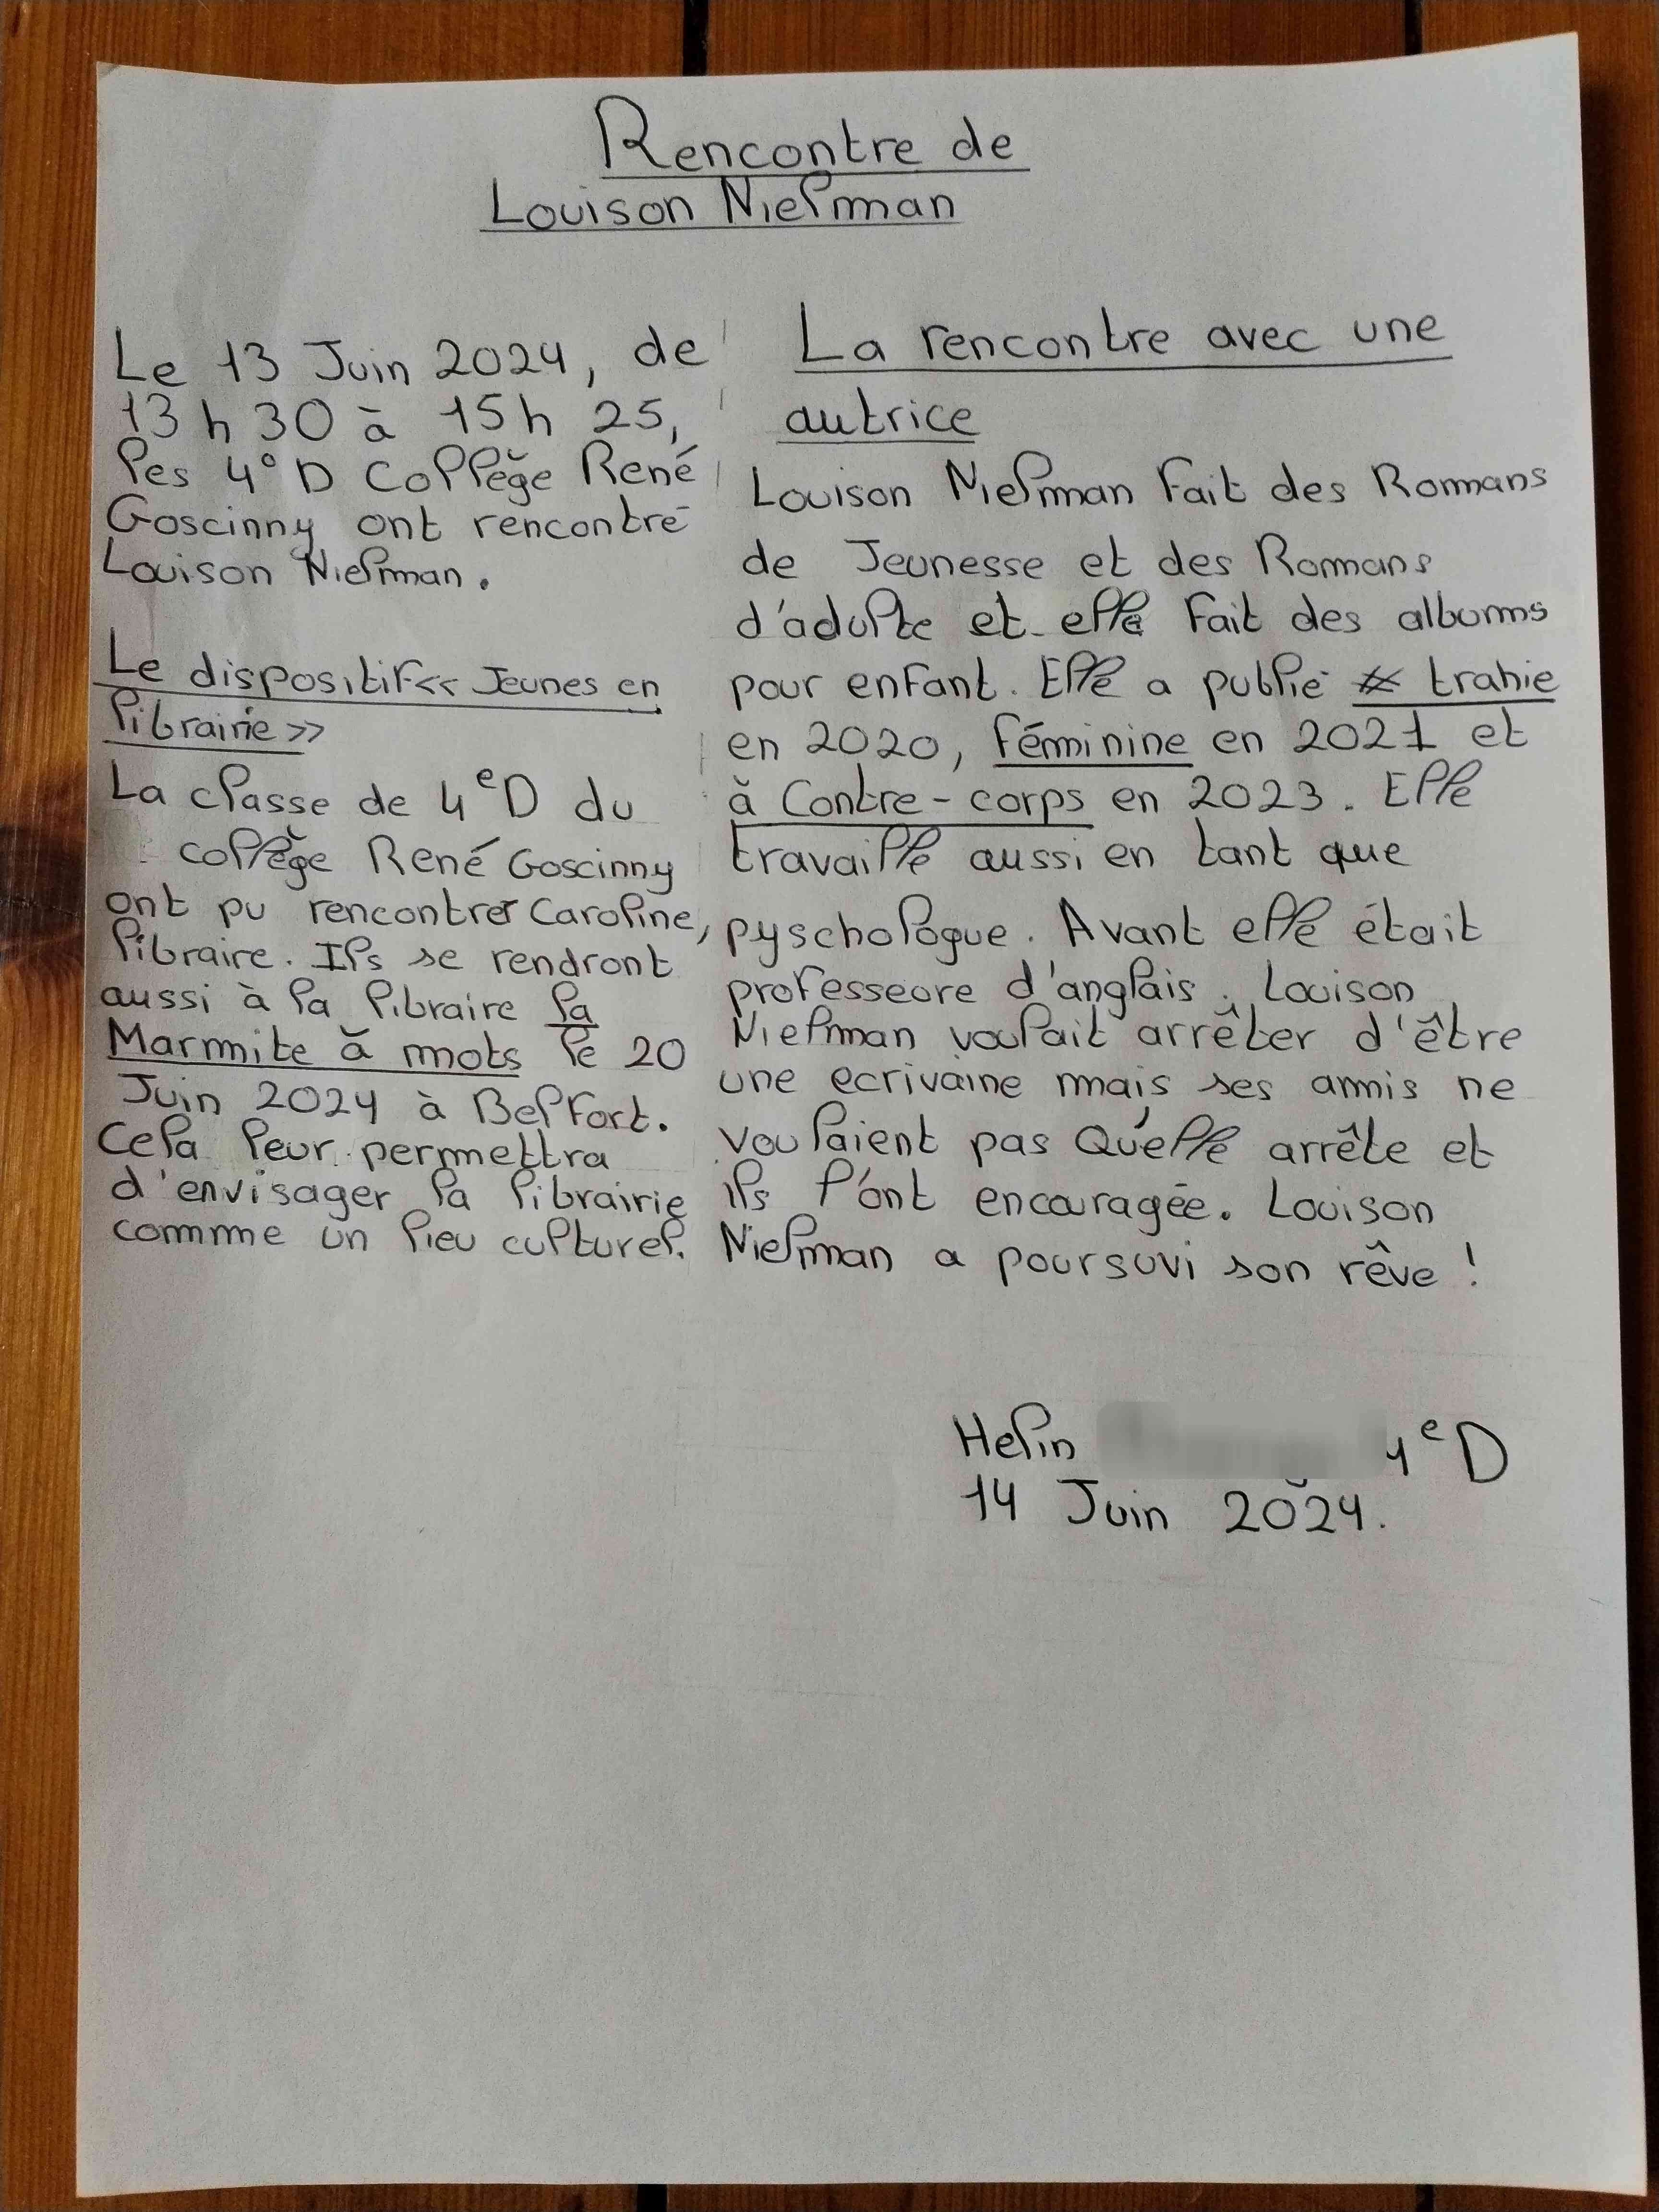 Rencontre de
Louison Nielman
Le 13 Juin 2024, de
13 h 30 à 15 h 25,
les 4° D Collège René
Goscinny ont rencontré
Louison Nielman.
Le dispositif << Jeunes en
librairie >>
La classe de 4e D du
collège René Goscinny
ont pu rencontrer Caroline,
libraire. Ils se rendront
aussi à la libraire la
Marmite à mots le 20
Juin 2024 à Belfort.
Cela leur permettra
d'envisager la librairie
comme un lieu culturel.
La rencontre avec une
autrice
Louison Nielman fait des Romans
de Jeunesse et des Romans
d'adulte et elle fait des albums
pour enfant. Elle a publié trahie
en 2020, féminine en 2021 et
à Contre-corps en 2023. Elle
travaille aussi en tant que
pyschologue. Avant elle était
professeore d'anglais. Louison
Nielman voulait arrêter d'être
une ecrivaine mais ses amis ne
voulaient pas Qu'elle arrête et
ils l'ont encouragée. Louison
Nielman a poursuvi son rêve !
Helin 4e D
14 Juin 2024.